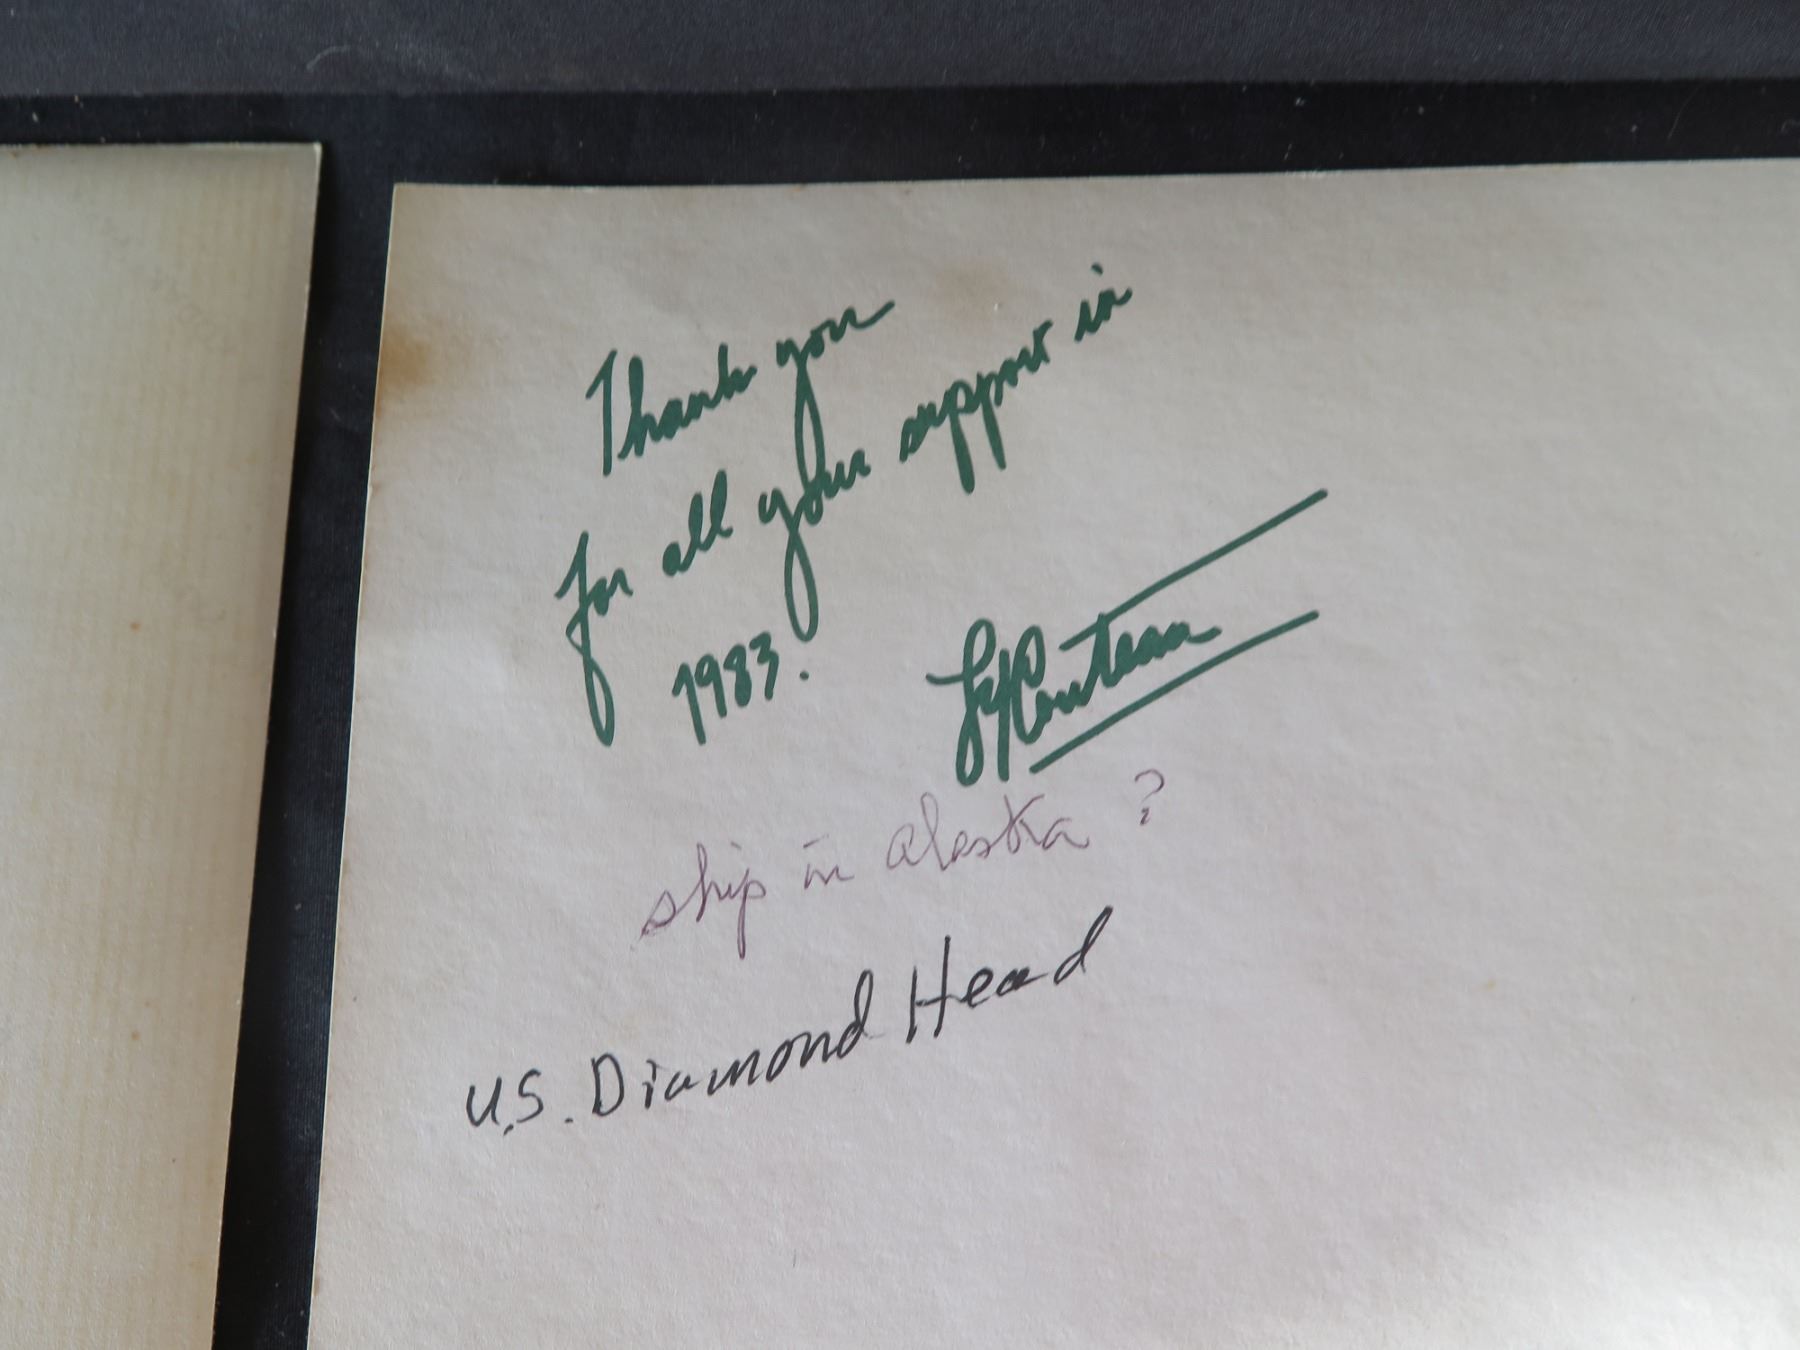 Thank you
for all your support in
1983.
ship in alaska ?
U.S. Diamond Head